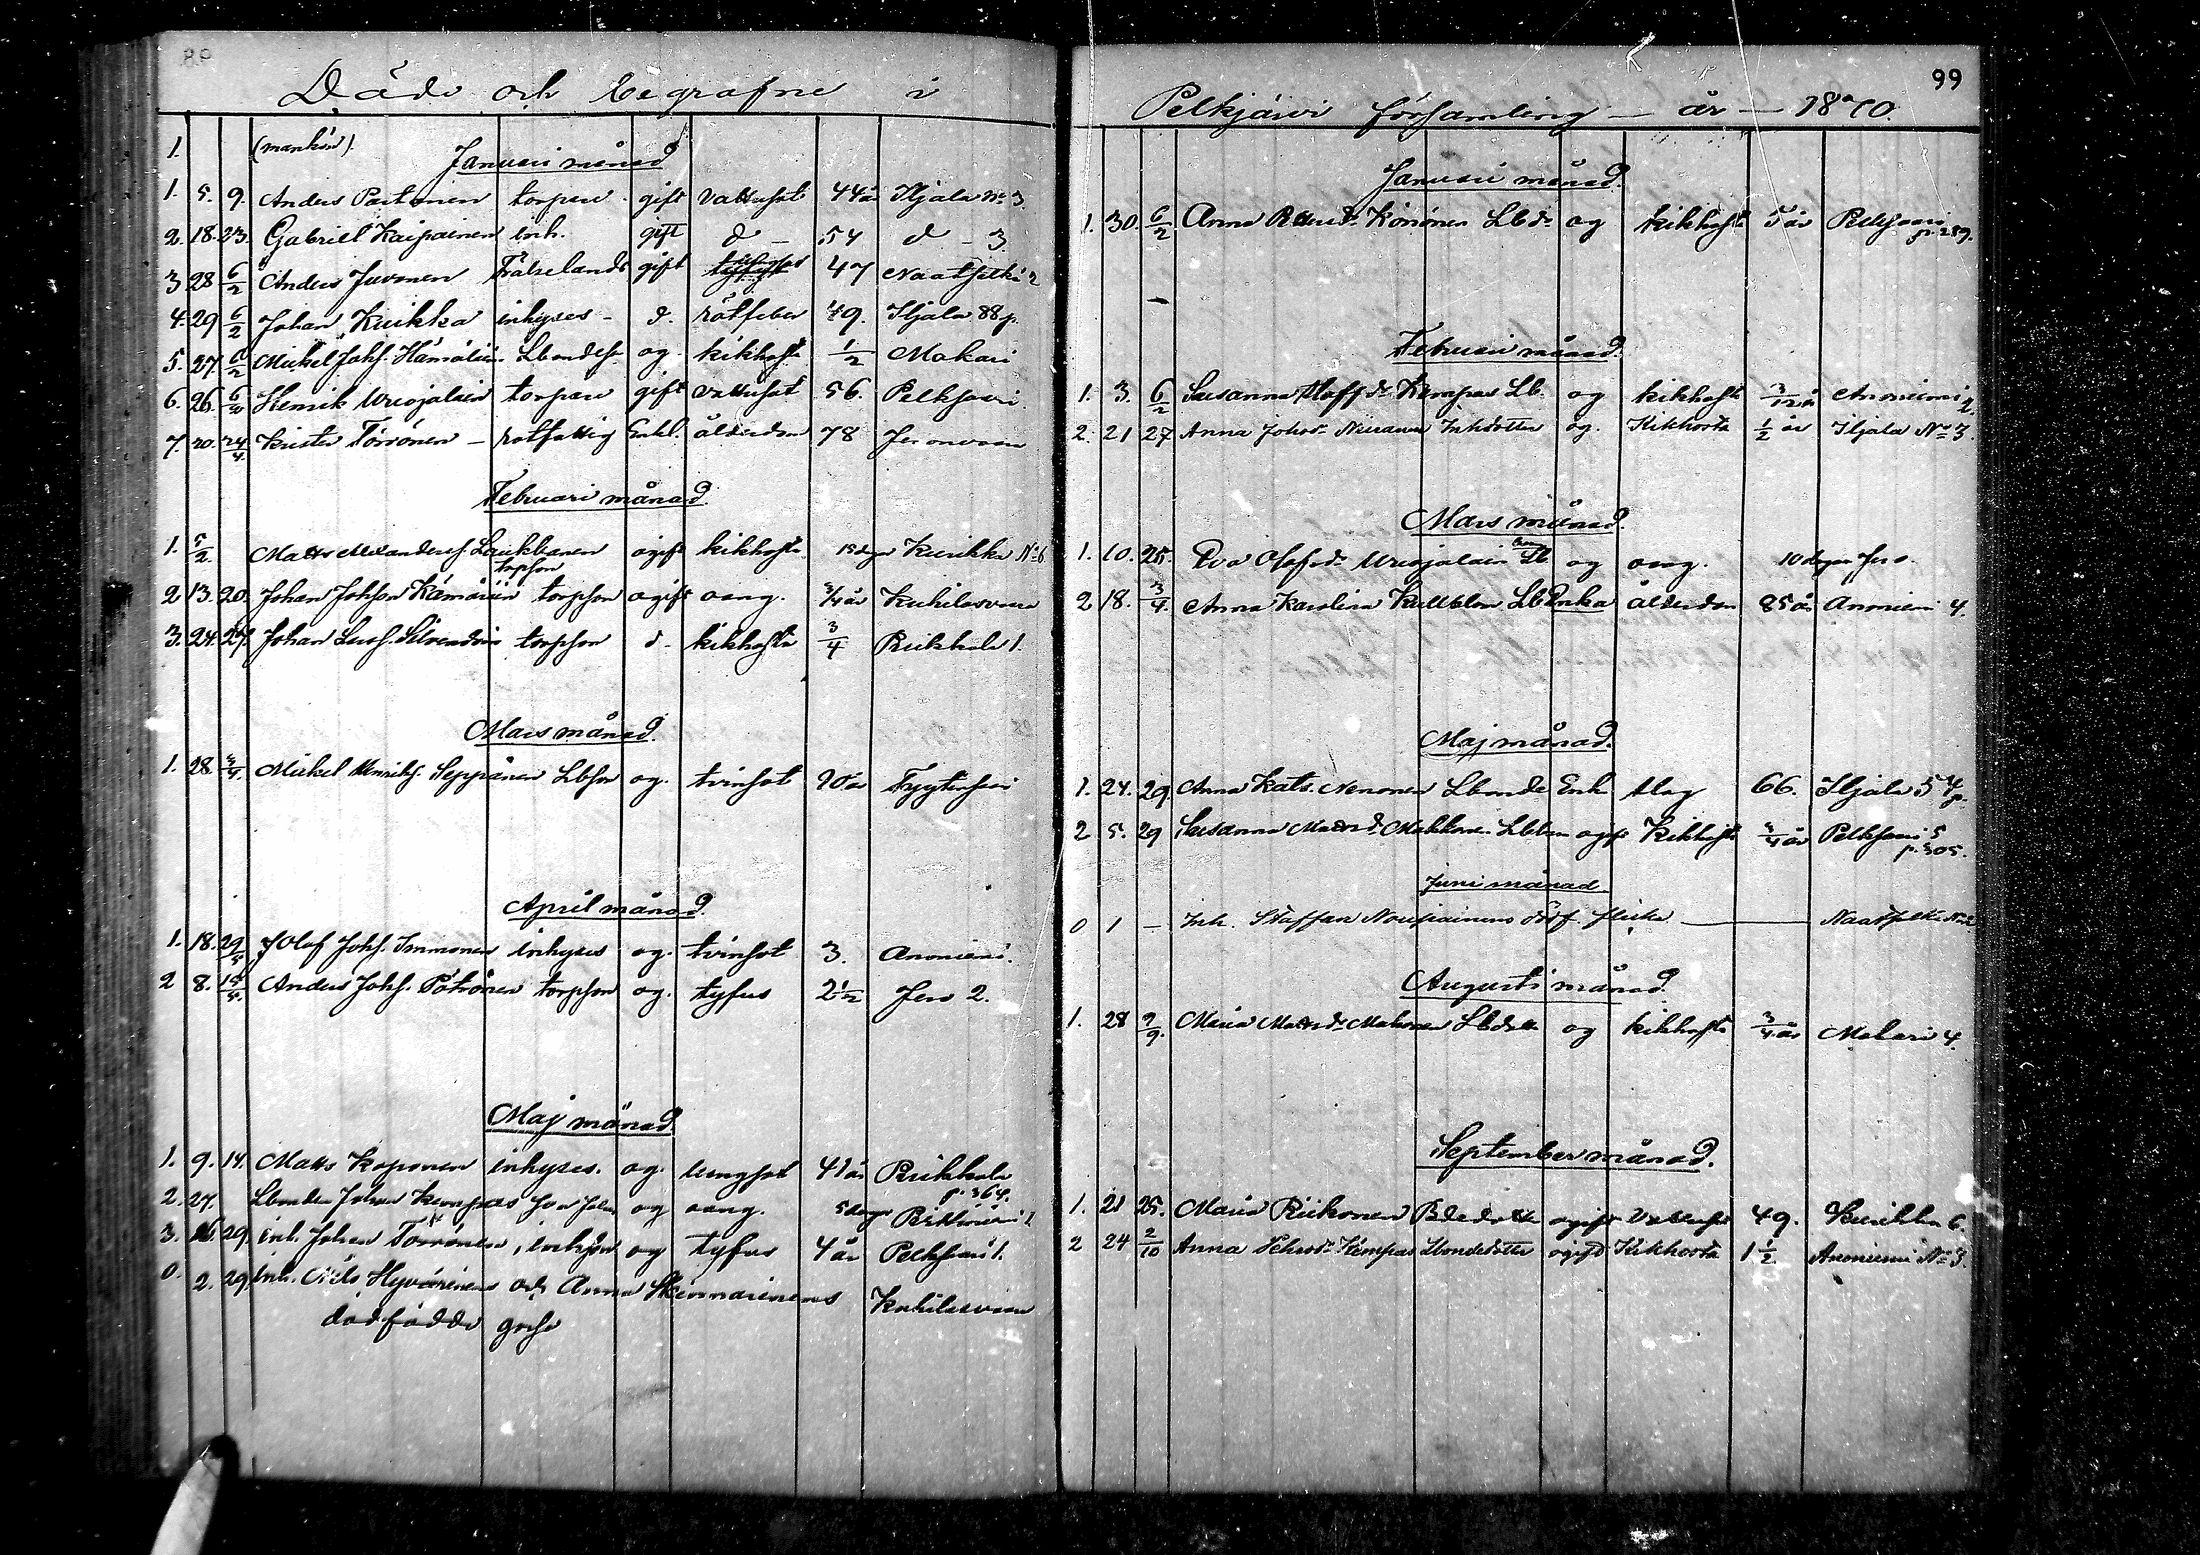 98
Döde och begrafne i
1. (mankön).
Januari månad
1. 5. 9. Anders Partonen torpare gift vattusot 44 år Iljala No 3.
2. 18. 23. Gabriel Kaipainen inh. gift d - 54 d - 3
3 28 6/2 Anders Juvonen Frälselands gift 47 Naatselkä 2
4. 29 6/2 Johan Kuikka inhyses - d. rötfeber 49. Iljala 88 p.
5. 27. 6/2 Mickel Johs. Hämäläin Lbondes. og. kikhosta 1/2 Makari
6. 26. Henrik Urvojalain torpare gift vattusot 56. Pelkjärvi
7. 20. 24/4. Krister Törrönen - rotfattig Enkl. ålderdom 78
Februari månad.
1. 5/2. Matts Alexanders. Laukkanen torpson ogift kikhosta Kurikka No 6
2 13. 20. Johan Johsson Kämäräin torpson ogift aang. 3/4 år Kuhilasvaara
3. 24. 27. Johan torpson d. kikhosta 3/4 Rukkala 1.
Mars månad.
1. 28 3/4. Mickel Henriks. Seppänen Lbson og. tvinsot
April månad.
1. 18. 29/5 Olof Johs. Immonen inhyses og. tvinsot 3. Anoniemi.
2 8. 15/5. Anders Johs. Pötrönen torpson og. tyfus 2 1/2 Jero 2.
Maj månad
1. 9. 14. Matts Koponen inhyses. og. lungsot 41 år Rukkala p. 364.
2. 27. Lbonden Johan Kempas son Johan og aang. 5 dagar
3. 16. 29. inh. Johan Törrönen, inhson og tyfus 4 år Pelkjärvi 1.
0. 2. 29. Inh. Nils Hyvärinens och Anna Skinnarinens Kuhilasvaara
dödfödde gosse
99
Pelkjärvi församling - år - 1870.
Januari månad.
1. 30. 6/2 Anna Könönen Lbdr og kikhosta 5 år Pelkjärvi p. 289.
Februari månad.
1. 3. 6/2 Susanna Kempas Lb. og kikhosta 3/12 år Anoniemi 2.
2. 21 27 Anna Johsdr Inhdotter og. Kikhosta 1/2 år Iljala No 3.
Mars månad.
1. 10. 25. Eva Olofsdr Urvojalain og aang. 10 dagar Jero.
2 18. 3/4. Anna Karolina Lb Enka ålderdom 85 år Anoniemi 4.
Maj månad.
1. 24. 29. Anna Kats. Nenonen Lbonde Enk slag 66. Iljala
2 5. 29 Susanna Mattsdr Makkonen ogift Kikhosta 3/4 år Pelkjärvi 5 p. 305.
Juni månad.
0 1 - Inh. Staffan Nousiainens död f. flicka - Naatselkä No 2
Augusti månad.
1. 28 Maria Mattsdr Makonen og kikhosta 3/4 år Makari 4.
September månad.
1. 21 25. Maria Riikonen ogift Vattusot 49. Kurikka 6.
2 24 2/10 Anna Kempas Lbondedotter ogift Kikhosta 1 1/2. Anoniemi No 3.